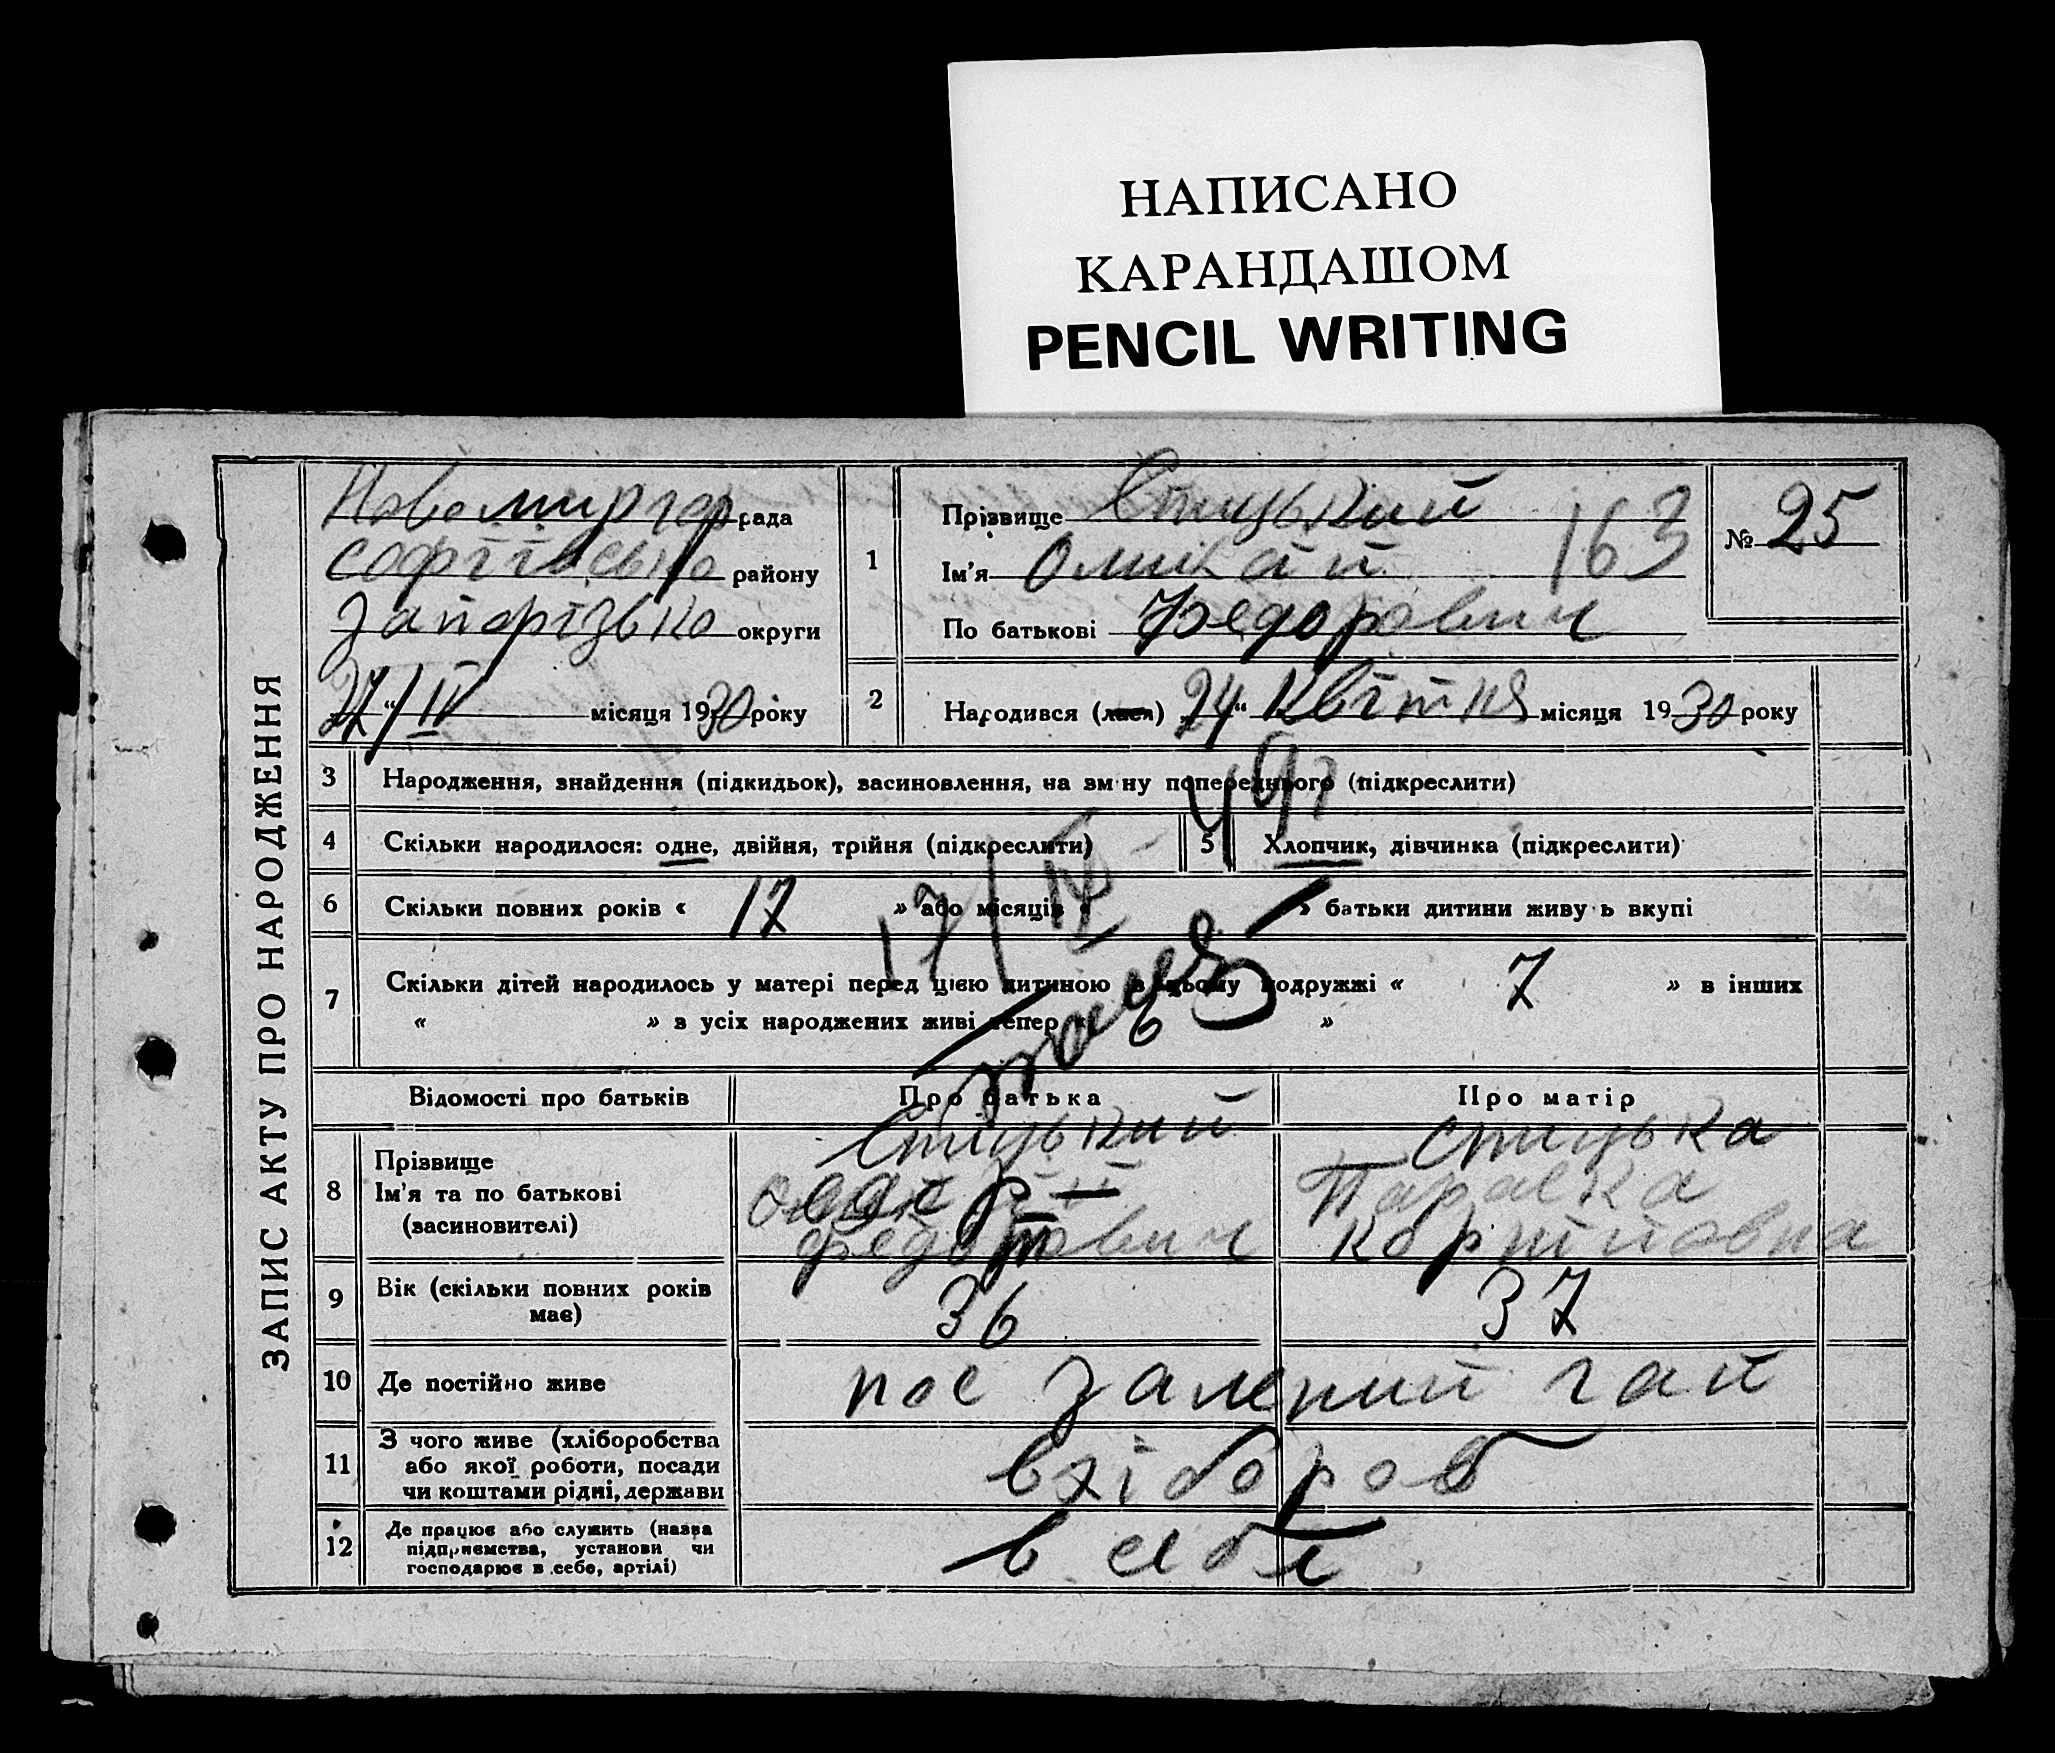 НАПИСАНО
КАРАНДАШОМ
PENCIL WRITING
ЗАПИС АКТУ ПРО НАРОДЖЕННЯ
Новомиргор рада
софіївсько району
Запорізько округи
27/IV місяця 1930 року
1
Прізвище Стицький
Ім'я 163
По батькові Федорович
№ 25
2
Народився (лася) 24 “ Квітня місяця 1930 року
3 Народження, знайдення (підкидьок), засиновлення, на зміну попереднього (підкреслити)
4 Скільки народилося: одне, двійня, трійня (підкреслити)
5 Хлопчик, дівчинка (підкреслити)
6 Скільки повних років « 17 » або місяців « » батьки дитини живуть вкупі
17/IV
7 Скільки дітей народилось у матері перед цією дитиною в цьому подружжі « 7 » в інших
« » з усіх народжених живі тепер « 6 »
Відомості про батьків Про батька Про матір
8 Прізвище
Ім'я та по батькові
(засиновителі)
Стицький
Федорович
стицька
Параска
9 Вік (скільки повних років має) 36 37
10 Де постійно живе пос залений гай
11 З чого живе (хліборобства або якої роботи, посади чи коштами рідні, держави
хлібороб
12 Де працює або служить (назва підприємства, установи чи господарює в себе, артілі)
в себе